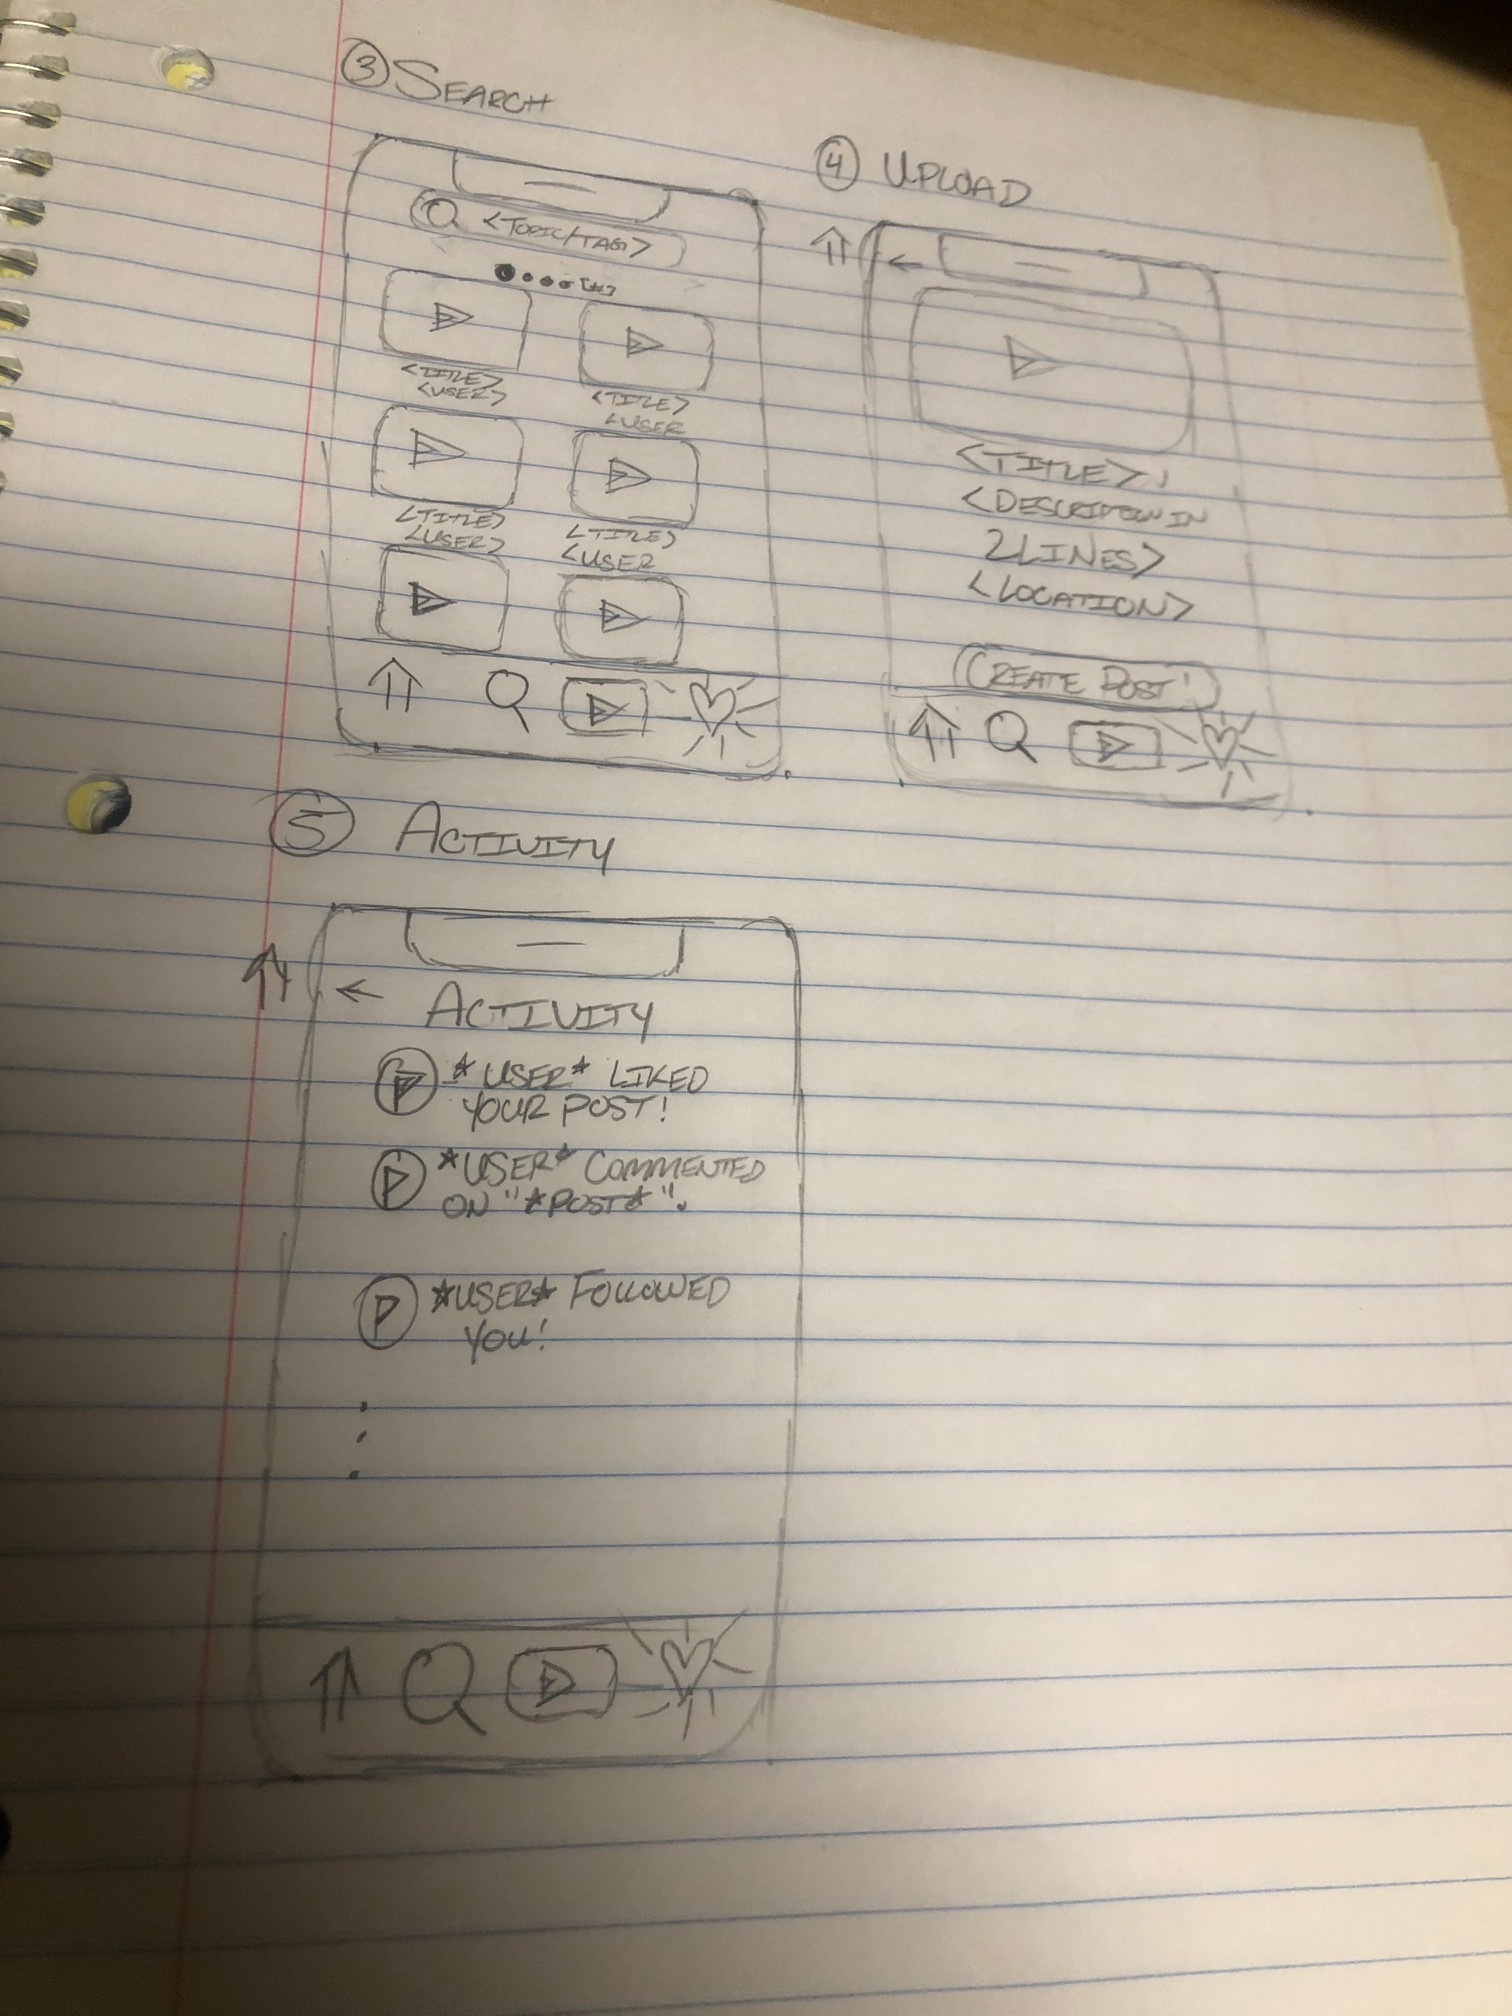 3 SEARCH
<TOPIC/TAG>
<TITLE>
<USER>
<TITLE>
<USER
<TITLE>
<USER>
<TITLE>
<USER
4 UPLOAD
<TITLE>
<DESCRIPTION IN
2 LINES>
<LOCATION>
CREATE POST!
5 ACTIVITY
ACTIVITY
*USER* LIKED
YOUR POST!
*USER* COMMENTED
ON "*POST*".
*USER* FOLLOWED
YOU!